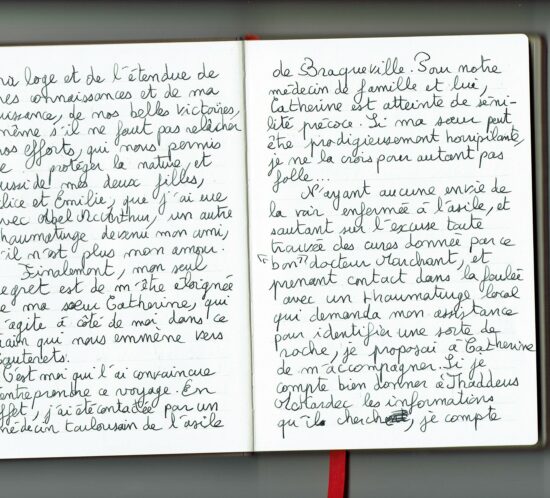 ma loge et de l'étendue de
mes connaissances et de ma
puissance, de nos belles victoires,
même s'il ne faut pas relâcher
nos efforts, qui nous permis
de protéger la nature, et
aussi de mes deux filles,
Alice et Emilie, que j'ai eue
avec Abel McArthur, un autre
thaumaturge devenu mon ami,
s'il n'est plus mon amour.
Finalement, mon seul
regret est de m'être éloignée
de ma sœur Catherine, qui
s'agite à côté de moi dans ce
train qui nous emmène vers
Cauterets.
C'est moi qui l'ai convaincue
d'entreprendre ce voyage. En
effet, j'ai été contactée par un
médecin toulousain de l'asile
de Braqueville. Pour notre
médecin de famille et lui,
Catherine est atteinte de séni-
lité précoce. Si ma sœur peut
être prodigieusement horripilante,
je ne la crois pour autant pas
folle...
N'ayant aucune envie de
la voir enfermée à l'asile, et
sautant sur l'excuse toute
trouvée des cures donnée par ce
"bon" docteur Marchant, et
prenant contact dans la foulée
avec un thaumaturge local
qui demanda mon assistance
pour identifier une sorte de
roche, je proposai à Catherine
de m'accompagner. Si je
compte bien donner à Thaddeus
McHardec les informations
qu'il cherche, je compte